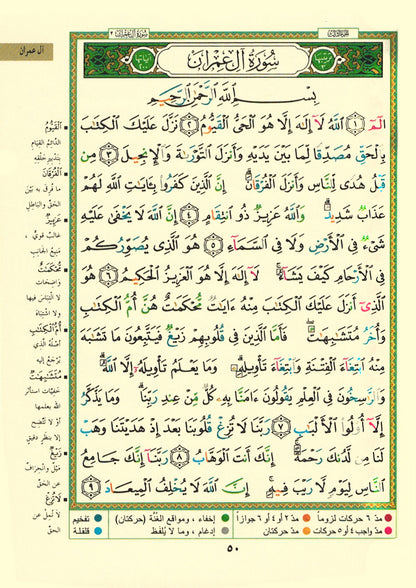 الجزء الثالث
سورة آل عمران ٣
آل عمران
ترتيبها ٣
سُورَةُ آلِ عِمْرَانَ
آياتها ٢٠٠
بِسْمِ اللَّهِ الرَّحْمَٰنِ الرَّحِيمِ
الٓمٓ ١ اللَّهُ لَا إِلَٰهَ إِلَّا هُوَ الْحَيُّ الْقَيُّومُ ٢ نَزَّلَ عَلَيْكَ الْكِتَٰبَ
بِالْحَقِّ مُصَدِّقًا لِّمَا بَيْنَ يَدَيْهِ وَأَنزَلَ التَّوْرَىٰةَ وَالْإِنجِيلَ ٣ مِن
قَبْلُ هُدًى لِّلنَّاسِ وَأَنزَلَ الْفُرْقَانَ ۗ إِنَّ الَّذِينَ كَفَرُوا بِـَٔايَٰتِ اللَّهِ لَهُمْ
عَذَابٌ شَدِيدٌ ۗ وَاللَّهُ عَزِيزٌ ذُو انتِقَامٍ ٤ إِنَّ اللَّهَ لَا يَخْفَىٰ عَلَيْهِ
شَىْءٌ فِي الْأَرْضِ وَلَا فِي السَّمَآءِ ٥ هُوَ الَّذِي يُصَوِّرُكُمْ
فِي الْأَرْحَامِ كَيْفَ يَشَآءُ ۚ لَآ إِلَٰهَ إِلَّا هُوَ الْعَزِيزُ الْحَكِيمُ ٦ هُوَ
الَّذِيٓ أَنزَلَ عَلَيْكَ الْكِتَٰبَ مِنْهُ ءَايَٰتٌ مُّحْكَمَٰتٌ هُنَّ أُمُّ الْكِتَٰبِ
وَأُخَرُ مُتَشَٰبِهَٰتٌ ۖ فَأَمَّا الَّذِينَ فِي قُلُوبِهِمْ زَيْغٌ فَيَتَّبِعُونَ مَا تَشَٰبَهَ
مِنْهُ ابْتِغَآءَ الْفِتْنَةِ وَابْتِغَآءَ تَأْوِيلِهِ ۗ وَمَا يَعْلَمُ تَأْوِيلَهُٓ إِلَّا اللَّهُ ۗ
وَالرَّٰسِخُونَ فِي الْعِلْمِ يَقُولُونَ ءَامَنَّا بِهِ كُلٌّ مِّنْ عِندِ رَبِّنَا ۗ وَمَا يَذَّكَّرُ
إِلَّآ أُولُوا الْأَلْبَٰبِ ٧ رَبَّنَا لَا تُزِغْ قُلُوبَنَا بَعْدَ إِذْ هَدَيْتَنَا وَهَبْ
لَنَا مِن لَّدُنكَ رَحْمَةً ۚ إِنَّكَ أَنتَ الْوَهَّابُ ٨ رَبَّنَآ إِنَّكَ جَامِعُ
النَّاسِ لِيَوْمٍ لَّا رَيْبَ فِيهِ ۚ إِنَّ اللَّهَ لَا يُخْلِفُ الْمِيعَادَ ٩
القَيُّومُ
الدائم القيام
بتدبير خلقه
الفُرْقَانَ
ما فرق به بين
الحق والباطل
عَزِيزٌ
غالب قوي،
منيع الجانب
مُحْكَمَٰتٌ
واضحات
لا التباس فيها
ولا اشتباه
أُمُّ الكِتَٰبِ
أصله الذي
يرجع إليه
مُتَشَٰبِهَٰتٌ
خفيات استأثر
الله بعلمها
أو لا تتضح
إلا بنظر دقيق
زَيْغٌ
ميل وانحراف
عن الحق
لَا تُزِغْ
لا تمل عن
الحق
مدّ ٦ حركات لزوماً
مدّ ٢ أو ٤ أو ٦ جوازاً
إخفاء، ومواقع الغُنَّة (حركتان)
تفخيم
مدّ واجب ٤ أو ٥ حركات
مدّ حركتان
إدغام، وما لا يُلفَظ
قلقلة
٥٠